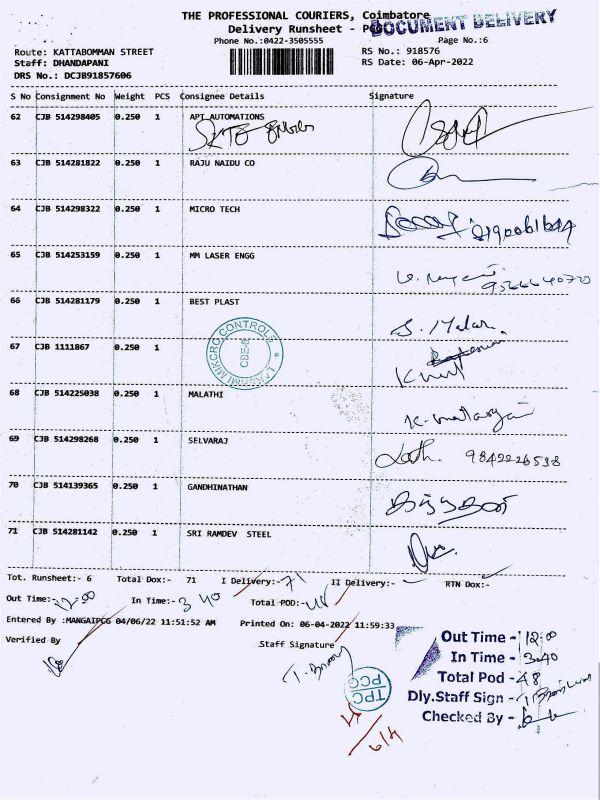 THE PROFESSIONAL COURIERS, Coimbatore
DOCUMENT DELIVERY
Delivery Runsheet - PCG
Phone No.:0422-3505555
Page No.:6
Route: KATTABOMMAN STREET
RS No.: 918576
Staff: DHANDAPANI
RS Date: 06-Apr-2022
DRS No.: DCJB91857606
S No Consignment No Weight PCS Consignee Details Signature
62 CJB 514298405 0.250 1 APT AUTOMATIONS
63 CJB 514281822 0.250 1 RAJU NAIDU CO
64 CJB 514298322 0.250 1 MICRO TECH
65 CJB 514253159 0.250 1 MM LASER ENGG
66 CJB 514281179 0.250 1 BEST PLAST
S. Malar
67 CJB 1111867 0.250 1
LAKSHMI MIKCRO CONTROLS
CBE-6
68 CJB 514225038 0.250 1 MALATHI
69 CJB 514298268 0.250 1 SELVARAJ
9842226538
70 CJB 514139365 0.250 1 GANDHINATHAN
71 CJB 514281142 0.250 1 SRI RAMDEV STEEL
Tot. Runsheet:- 6 Total Dox:- 71 I Delivery:- 71 II Delivery:- RTN Dox:-
Out Time:- 12.00 In Time:- 3 40 Total POD:- 48
Entered By :MANGAIPCG 04/06/22 11:51:52 AM Printed On: 06-04-2022 11:59:33
Verified By
Staff Signature
TPC
PCG
6/4
Out Time - 12.00
In Time - 3.40
Total Pod - 48
Dly.Staff Sign -
Checked By -